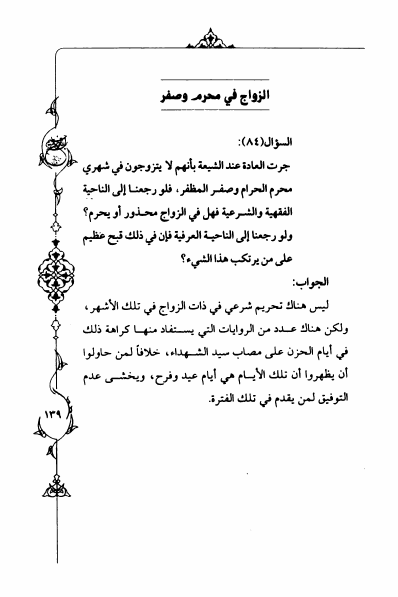 الزواج في محرم وصفر
السؤال(٨٤):
جرت العادة عند الشيعة بأنهم لا يتزوجون في شهري
محرم الحرام وصفر المظفر، فلو رجعنا إلى الناحية
الفقهية والشرعية فهل في الزواج محذور أو يحرم؟
ولو رجعنا إلى الناحية العرفية فإن في ذلك قبح عظيم
على من يرتكب هذا الشيء؟
الجواب:
ليس هناك تحريم شرعي في ذات الزواج في تلك الأشهر،
ولكن هناك عدد من الروايات التي يستفاد منها كراهة ذلك
في أيام الحزن على مصاب سيد الشهداء، خلافاً لمن حاولوا
أن يظهروا أن تلك الأيام هي أيام عيد وفرح، ويخشى عدم
التوفيق لمن يقدم في تلك الفترة.
١٣٩